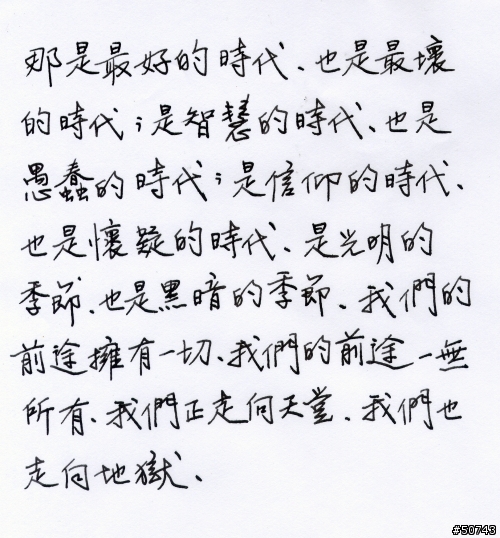 那是最好的時代、也是最壞
的時代；是智慧的時代、也是
愚蠢的時代；是信仰的時代、
也是懷疑的時代、是光明的
季節、也是黑暗的季節、我們的
前途擁有一切、我們的前途一無
所有、我們正走向天堂、我們也
走向地獄、
#50743